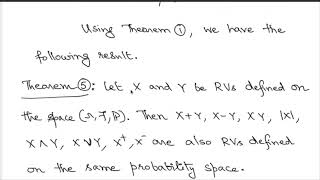 Using Theorem ①, we have the
following result.
Theorem ⑤: Let X and Y be RVs defined on
the space (Ω, F, P). Then X+Y, X-Y, XY, |X|,
X∧Y, X∨Y, X⁺, X⁻ are also RVs defined
on the same probability space.